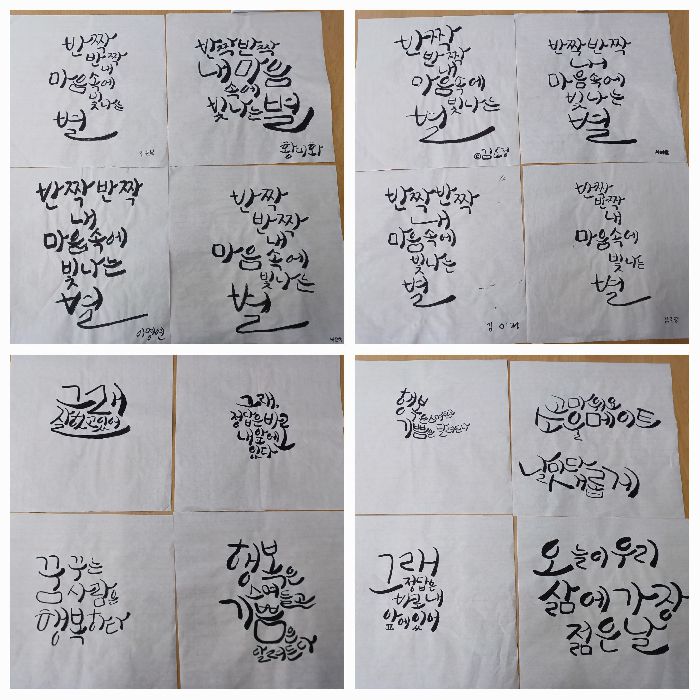 반짝
반짝
내
마음속에
빛나는
별
반짝반짝
내마음
속에
빛나는별
반짝반짝
내
마음속에
빛나는
별
이영연
반짝
반짝
내
마음속에
빛나는
별
반짝
반짝
내
마음속에
빛나는
별
반짝반짝
내
마음속에
빛나는
별
반짝반짝
내
마음속에
빛나는
별
반짝
반짝
내
마음속에
빛나는
별
그래
잘하고있어
그래,
정답은바로
내앞에
있다
꿈꾸는
사람은
행복하다
행복은
스며들고
기쁨은
행복
은스며들고
기쁨은
고마워요
소울메이트
날마다
새롭게
그래
정답은
바로내
앞에있어
오늘이우리
삶에가장
젊은날